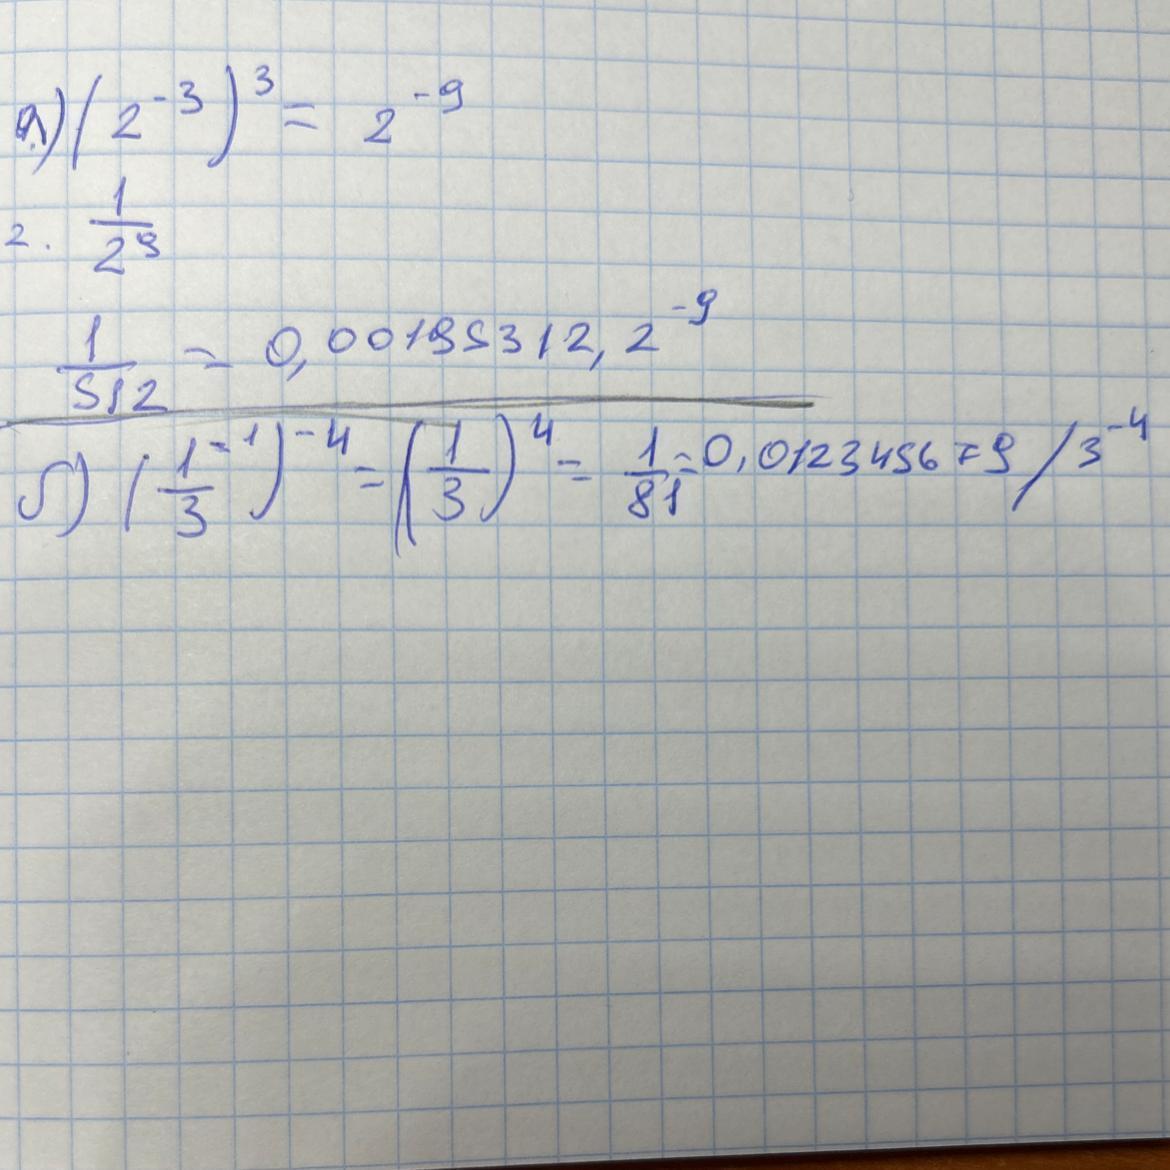 а) (2^-3)^3 = 2^-9
2. 1/2^9
1/512 = 0,00195312, 2^-9
б) (1^-1/3)^-4 = (1/3)^4 = 1/81 = 0,012345679 / 3^-4